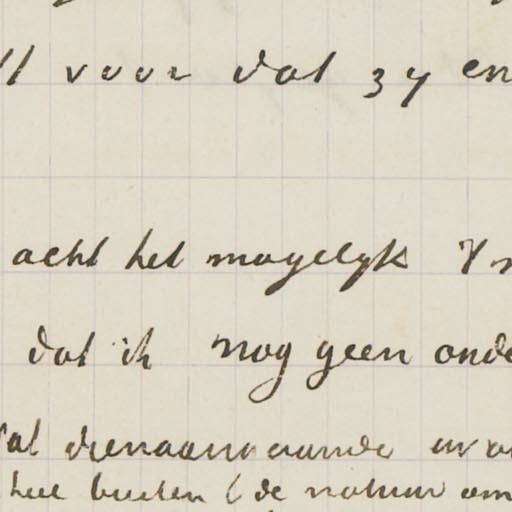 voor dat zy en
acht het mogelyk
dat ik nog geen onde
dienaangaande
heel buiten (de natuur om